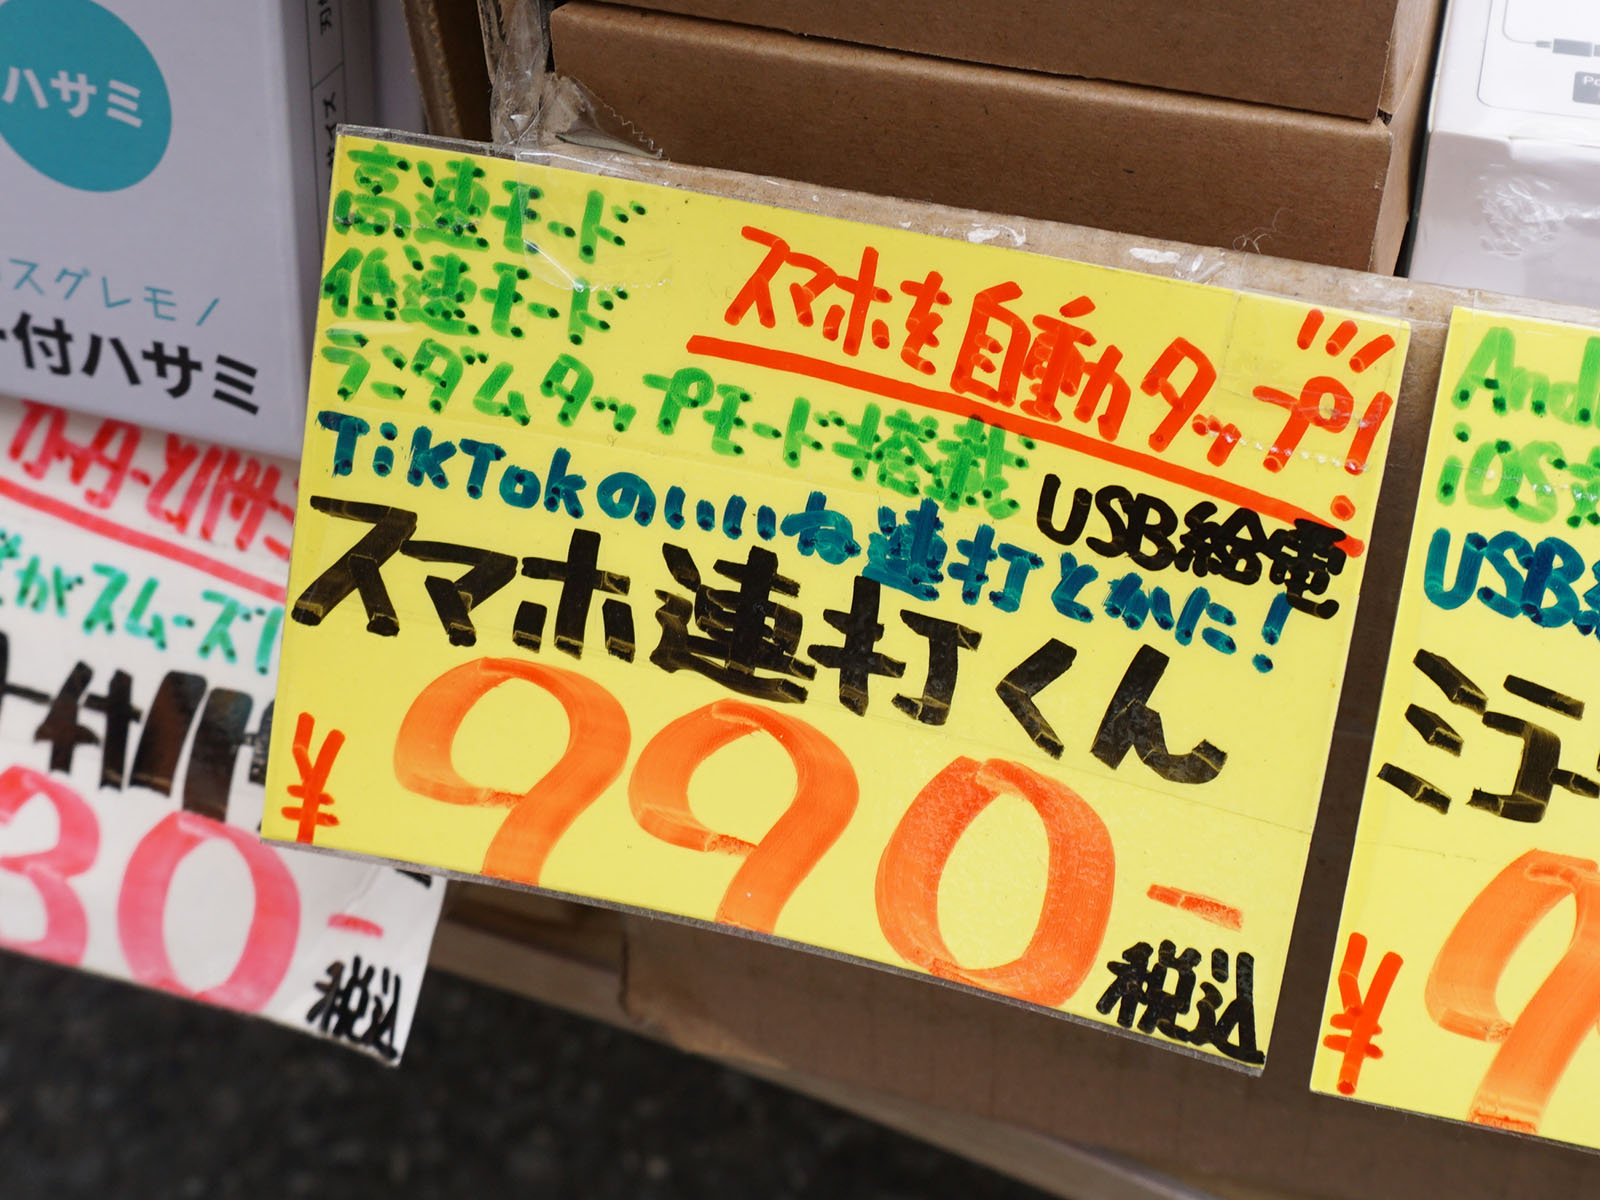 ハサミ
スグレモノ
付ハサミ
がスムーズ!
30-
税込
高速モード
低速モード
ランダムタップモード搭載
スマホを自動タップ!!
TikTokのいいね連打とかに!
USB給電
スマホ連打くん
¥990-
税込
And
iOS
USB
ミニ
¥9